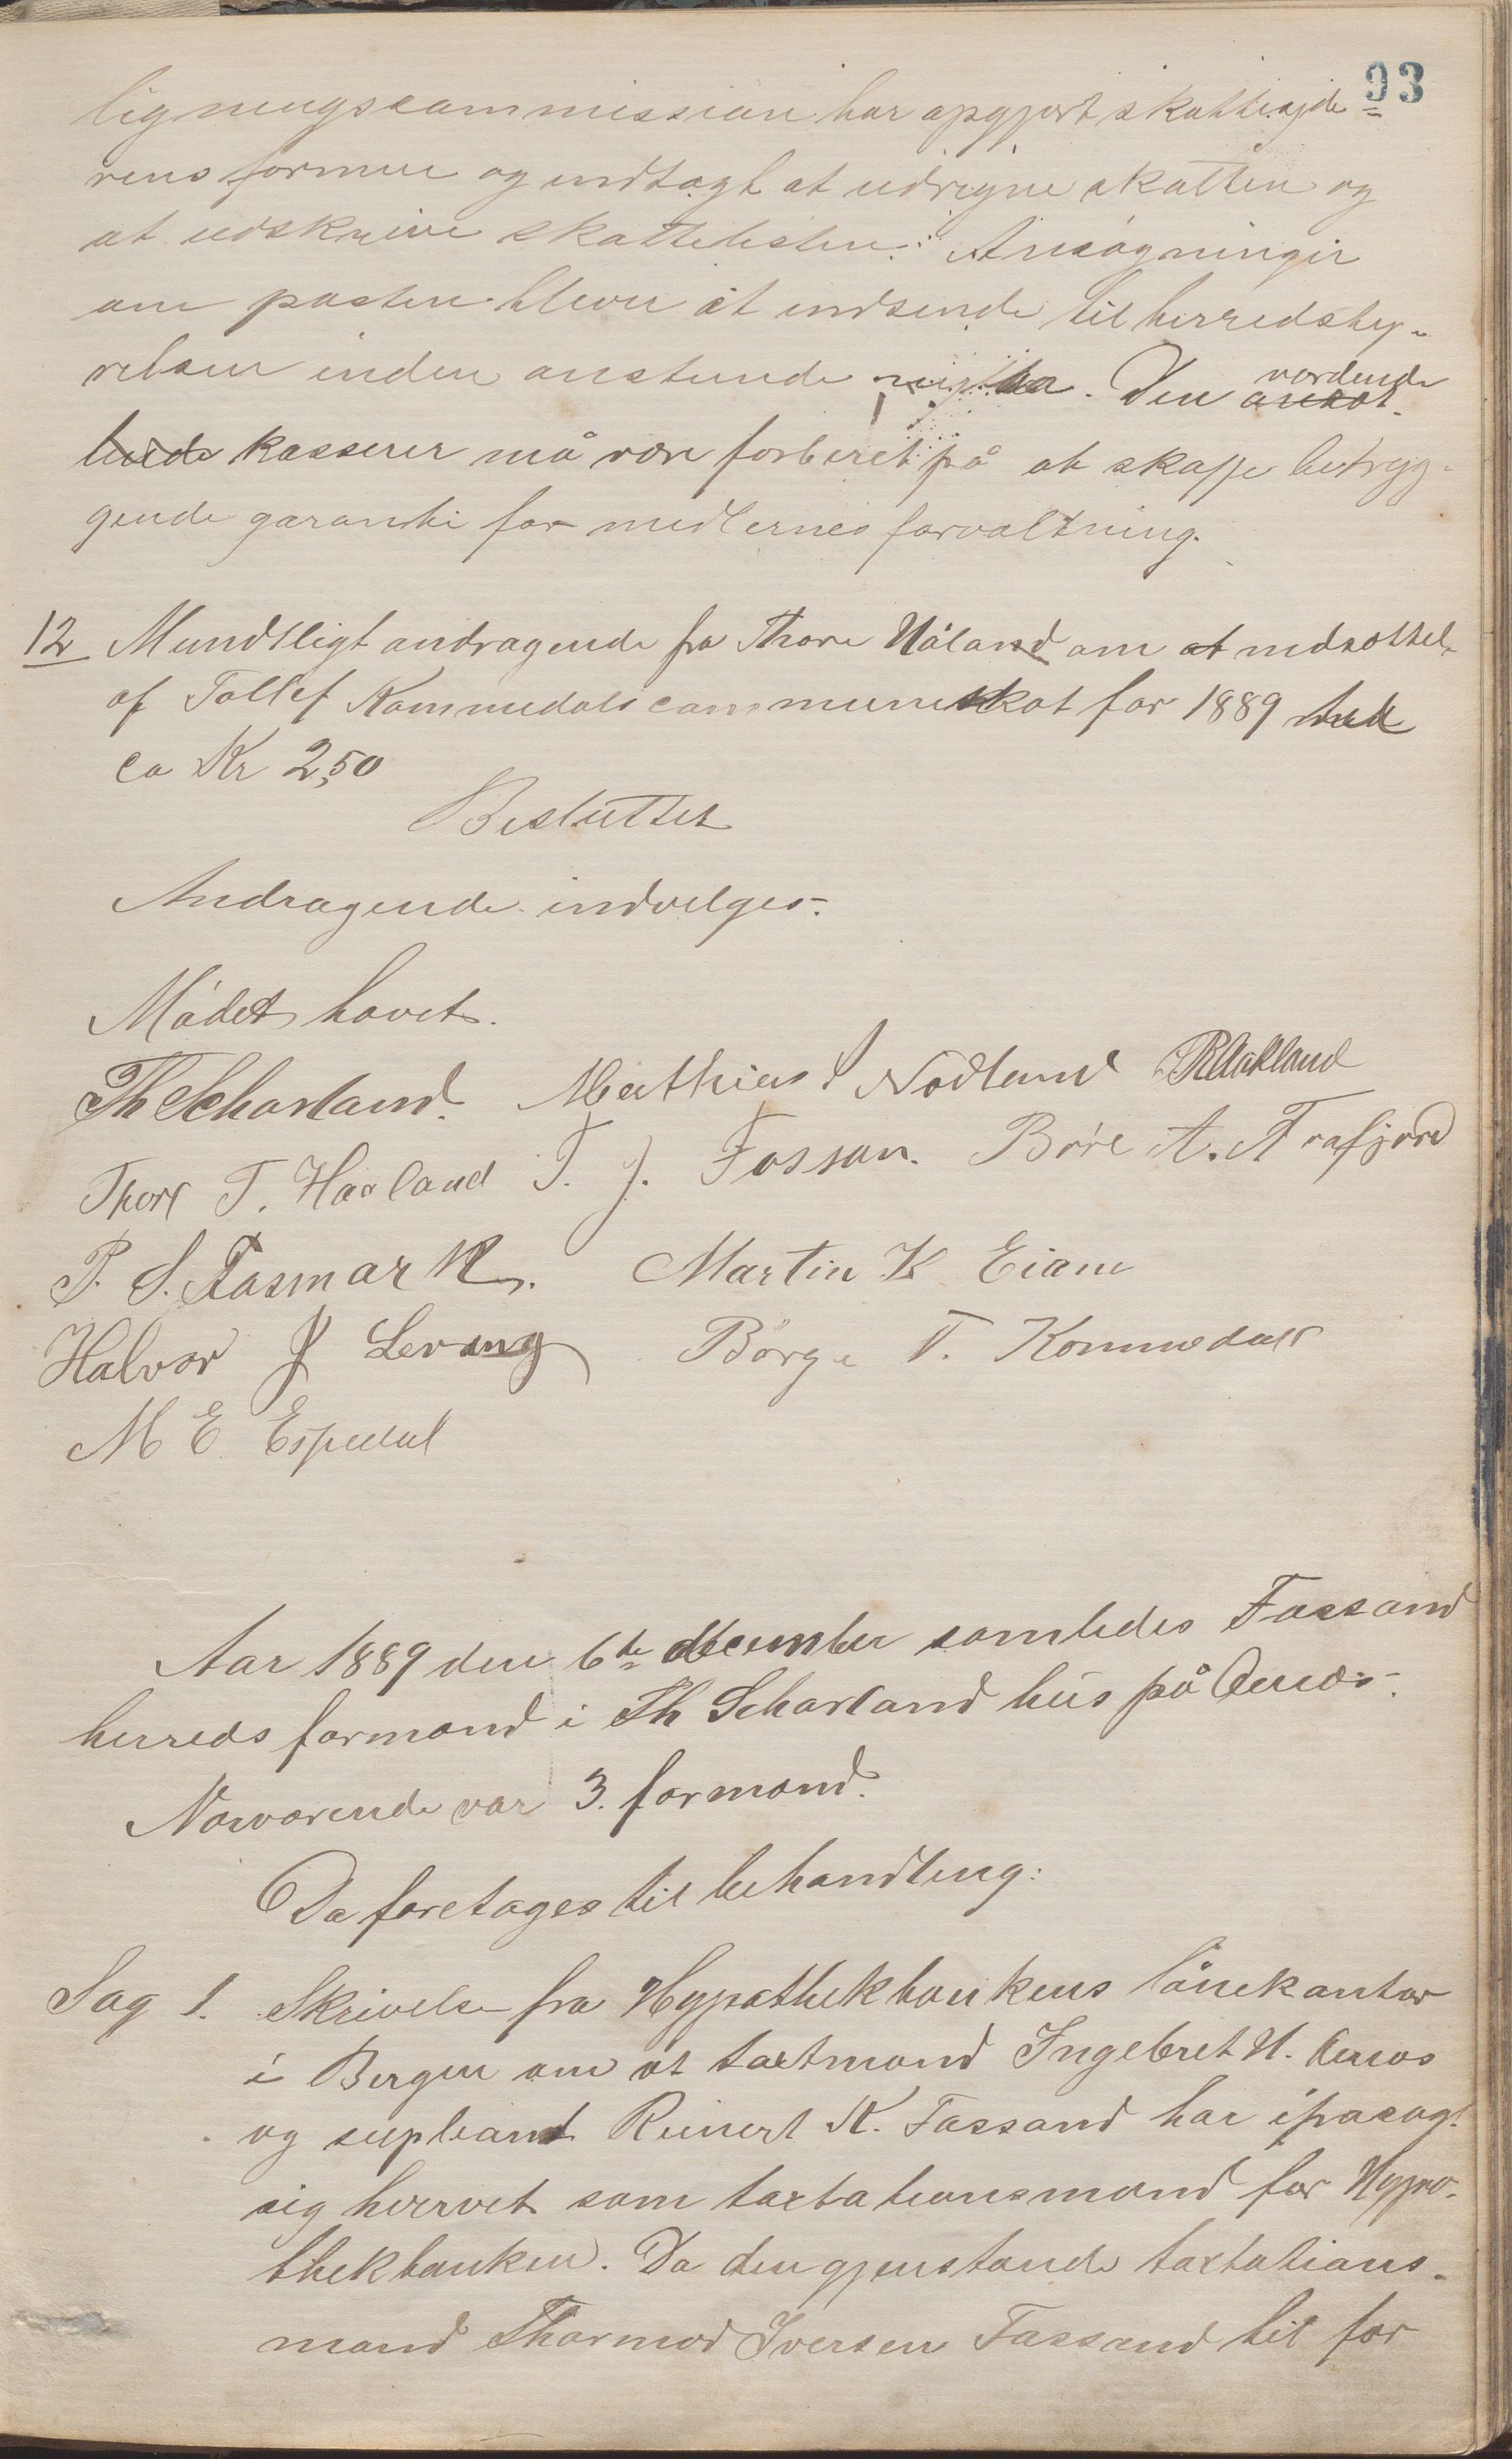 93
ligningscommission har opgjort skatteyde=
rens formue og indtægt at udregne skatten og
at udskrive skattelisten. Ansøgninger
om posten bliver at indsende til herredsty-
relsen inden anstundende nytår. Den vordende
kasserer må være forberet på at skaffe betryg-
gende garanti for midlernes forvaltning.
12 Mundtligt andragende fra Thore Håland om at nedsættel-
af Tollef Kommedals communeskat for 1889 med
ca Kr 2,50
Besluttet
Andragende indvilges.
Mødet hævet.
Th Scharland. Mathias J Nødland R Aakland
Thore T. Haaland T. J. Fossan. Børe A. Frafjord
P. S. Aasmark. Martin K Eiane
Halvor J Levang Børge T. Kommedal
M E Espedal
Aar 1889 den 6te december samledes Fossand
herreds formænd i Th Scharland hus på Eenæs.
Nærværende var 3. formænd.
Da foretages til behandling:
Sag 1. Skrivelse fra Hypothekbankens lånekontor
i Bergen om at taxtmand Ingebret H. Eenæs
og supleant Reinert K. Fossand har frasagt
sig hvervet som taxtationsmand for Hypo-
thekbanken. Da den gjenstående taxtations-
mand Thormod Iversen Fossand hit for